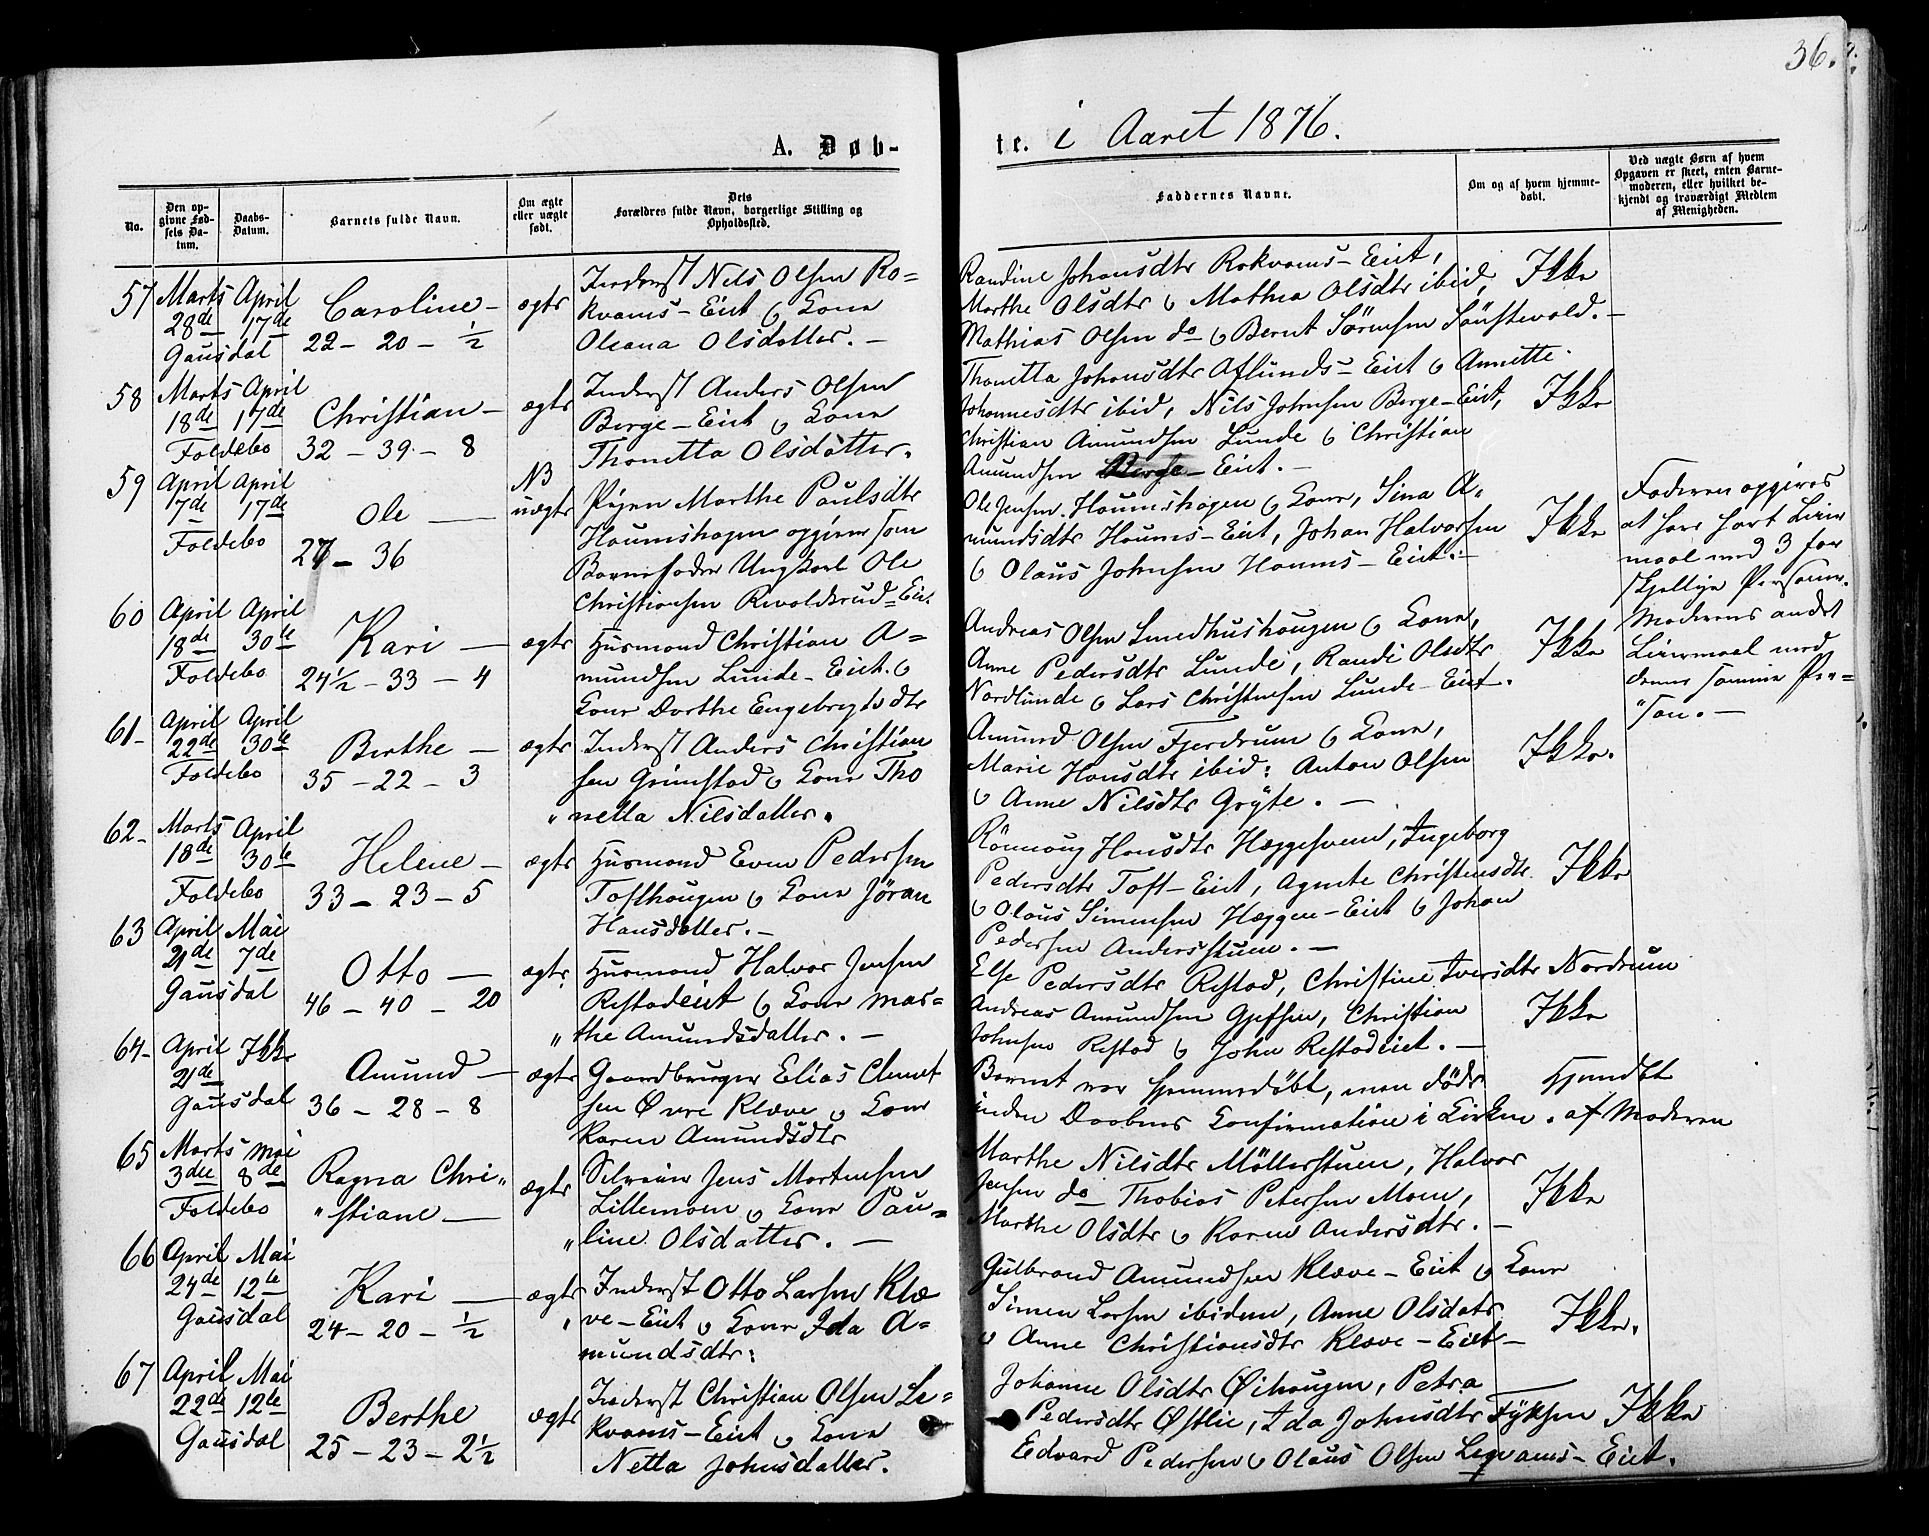 36.
A. Døb-
te. i Aaret 1876.
No.
Den op-
givne Fød-
sels Da-
tum.
Daabs-
Datum.
Barnets fulde Navn.
Om ægte
eller uægte
født.
Dets
Forældres fulde Navn, borgerlige Stilling og
Opholdssted.
Faddernes Navne.
Om og af hvem hjemme-
døbt.
Ved uægte Børn af hvem
Opgaven er skeet, enten Barne-
moderen, eller hvilket be-
kjendt og troværdigt Medlem
af Menigheden.
57 Marts April
28de 17de
Gausdal
Caroline –
22 – 20 – ½
ægte
Inderst Nils Olsen Ro=
kvams – Eiet & Kone
Oleana Olsdatter. –
Randine Johansdtr Rokvams – Eiet,
Marthe Olsdtr & Mathea Olsdtr ibid,
Mathias Olsen do & Bernt Sørensen Sønstevold. –
Ikke
58 Marts April
18de 17de
Foldebo
Christian –
32 – 39 – 8
ægte
Inderst Anders Olsen
Berge – Eiet & Kone
Thonetta Olsdatter.
Thonetta Johansdtr Aflunds – Eiet & Annette
Johannesdtr ibid, Nils Johnsen Berge – Eiet,
Christian Amundsen Lunde & Christian
Amundsen Berge – Eiet. –
Ikke
59 April April
7de 17de
Foldebo
Ole –
27 – 36
NB
uægte
Pigen Marthe Paulsdtr
Houmshagen opgiver som
Barnefader Ungkarl Ole
Christiansen Revoldsrud = Eie.
Ole Jensen Houmshagen & Kone, Sina A=
mundsdtr Houms – Eiet, Johan Halvorsen
& Olaus Johnsen Houms – Eiet. –
Ikke
Faderen opgives
at have havt Leier
maal med 3 for
skjellige Personer.
Moderens andet
Leiermaal med
denne samme Per=
son. –
60 April April
18de 30te
Foldebo
Kari –
24½ – 33 – 4
ægte
Husmand Christian A=
mundsen Lunde – Eiet &
Kone Dorthe Engebregtsdtr
Andreas Olsen Smedhushougen & Kone,
Anne Pedersdtr Lunde, Randi Olsdtr
Nordlunde & Lars Christensen Lunde – Eiet.
Ikke
61 – April April
22de 30te
Foldebo
Berthe –
35 – 22 – 3
ægte
Inderst Anders Christian
sen Grimstad & Kone Tho
netta Nilsdatter.
Amund Olsen Fjerdrum & Kone,
Marie Hansdtr ibid: Anton Olsen
& Anne Nilsdtr Gryte. –
Ikke.
62 – Marts April
18de 30te
Foldebo
Helene –
33 – 23 – 5
ægte
Husmand Even Pedersen
Tofthougen & Kone Jøran
Hansdatter. –
Rønnoug Hansdtr Hæggesveen, Ingeborg
Pedersdtr Toft – Eiet, Agnete Christensdtr
& Olaus Simensen Hæggen – Eiet & Johan
Pedersen Andersstuen. –
Ikke
63 April Mai
21de 7de
Gausdal
Otto –
46 – 40 – 20
ægte
Husmand Halvor Jensen
Restadeiet & Kone Mar=
the Amundsdatter. –
Else Pedersdtr Restad, Christine Iversdtr Nordrum
Andreas Amundsen Gjefsen, Christian
Johnsen Restad & John Restadeiet. –
Ikke
64 – April Ikke
21de
Gausdal
Amund –
36 – 28 – 8
ægte
Gaardbruger Elias Clemet
sen Øvre Kleve & Kone
Karen Amundsdtr
Barnet var hjemmedøbt, men døde
inden Daabens Confirmation i Kirken.
Hjemdøbt
af Moderen
65 Marts Mai
3die 8de
Foldebo
Ragna Chri„
„stiane –
ægte
Selveier Jens Mortensen
Lillemoen & Kone Pau=
„line Olsdatter. –
Marthe Nilsdtr Møllerstuen, Halvor
Jensen do Thobias Petersen Moen,
Marthe Olsdtr & Karen Andersdtr. –
Ikke
66 April Mai
24de 12te
Gausdal
Kari –
24 – 20 – ½
ægte
Inderst Otto Larsen Klæ
ve – Eiet & Kone Ida A=
mundsdtr:
Gulbrand Amundsen Klæve – Eiet & Kone
Simen Larsen ibidem, Anne Olsdatr
& Anne Christiansdtr Klæve – Eiet –
Ikke.
67 April Mai
22de 12te
Gausdal
Berthe
25 – 23 – 2½
ægte
Inderst Christian Olsen Le=
kvams – Eiet & Kone
Netta Johnsdatter.
Johanne Olsdtr Øihougen, Petra
Pedersdtr Østlie, Ida Johnsdtr Fyksen
Edvard Pedersen & Olaus Olsen Leqvams – Eiet.
Ikke